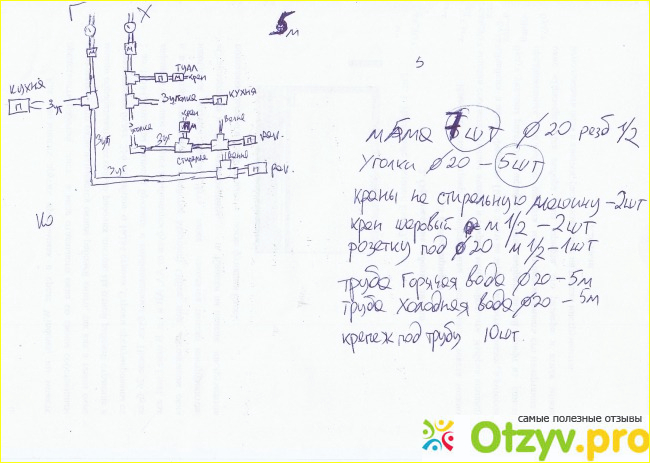 Г Х
5 м
5
М
М
туал
П М кран
кухня
П
Зуг
Зуголка
П
кухня
Зуг
уголка
Зуг
кран
М
стиралка
Ванна
П
рак.
Зуг
Ванна
П
рак.
мама 7 шт ф 20 резб 1/2
уголки ф20 - 5шт
краны на стиральную машину - 2шт
кран шаровый м 1/2 - 2шт
розетку под ф20 м 1/2 - 1шт
труба Горячая вода ф20 - 5м
труба Холодная вода ф20 - 5м
крепеж под трубу 10шт.
самые полезные отзывы
Otzyv.pro